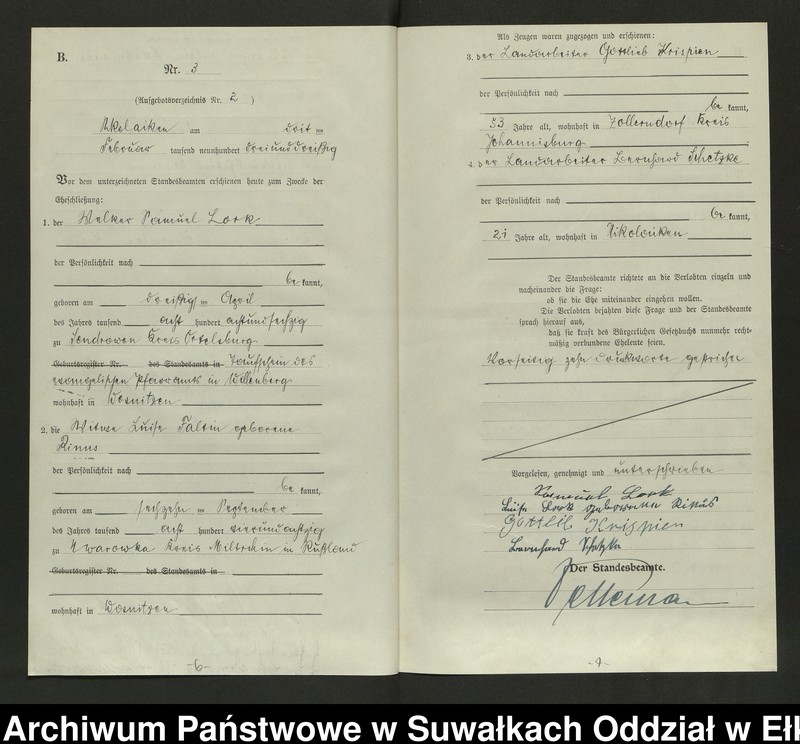 B.
Nr. 3
(Aufgebotsverzeichnis Nr. 2 )
Ukolaiken am drit en
Februar tausend neunhundert dreiunddreißig
Vor dem unterzeichneten Standesbeamten erschienen heute zum Zwecke der
Eheschließung:
1. der Melker Samuel Lork
der Persönlichkeit nach
be kannt,
geboren am dreißig en April
des Jahres tausend acht hundert achtundsechzig
zu Sendrowen Kreis Ortelsburg
Geburtsregister Nr. des Standesamts in Taufschein des
evangelischen Pfarramts in Willenberg
wohnhaft in Dosnitzen
2. die Witwe Luise Faltin geborene
Rinus
der Persönlichkeit nach
be kannt,
geboren am sechzehn en September
des Jahres tausend acht hundert vierundachtzig
zu Uwarowka Kreis in Rußland
Geburtsregister Nr. des Standesamts in
wohnhaft in Dosnitzen
-6-
Als Zeugen waren zugezogen und erschienen:
3. der Landarbeiter Gottlieb Krispien
der Persönlichkeit nach
be kannt,
53 Jahre alt, wohnhaft in Zollerndorf Kreis
Johannisburg
4. der Landarbeiter Bernhard Schetzke
der Persönlichkeit nach
be kannt,
21 Jahre alt, wohnhaft in Nikolaiken
Der Standesbeamte richtete an die Verlobten einzeln und
nacheinander die Frage:
ob sie die Ehe miteinander eingehen wollen.
Die Verlobten bejahten diese Frage und der Standesbeamte
sprach hierauf aus,
daß sie kraft des Bürgerlichen Gesetzbuchs nunmehr recht-
mäßig verbundene Eheleute seien.
Vorseitig zehn Druckworte gestrichen
Vorgelesen, genehmigt und unterschrieben
Samuel Lork
Luise Lork geborene Rinus
Gottlib Krispien
Bernhard Schetzke
Der Standesbeamte.
Archiwum Państwowe w Suwałkach Oddział w Eł